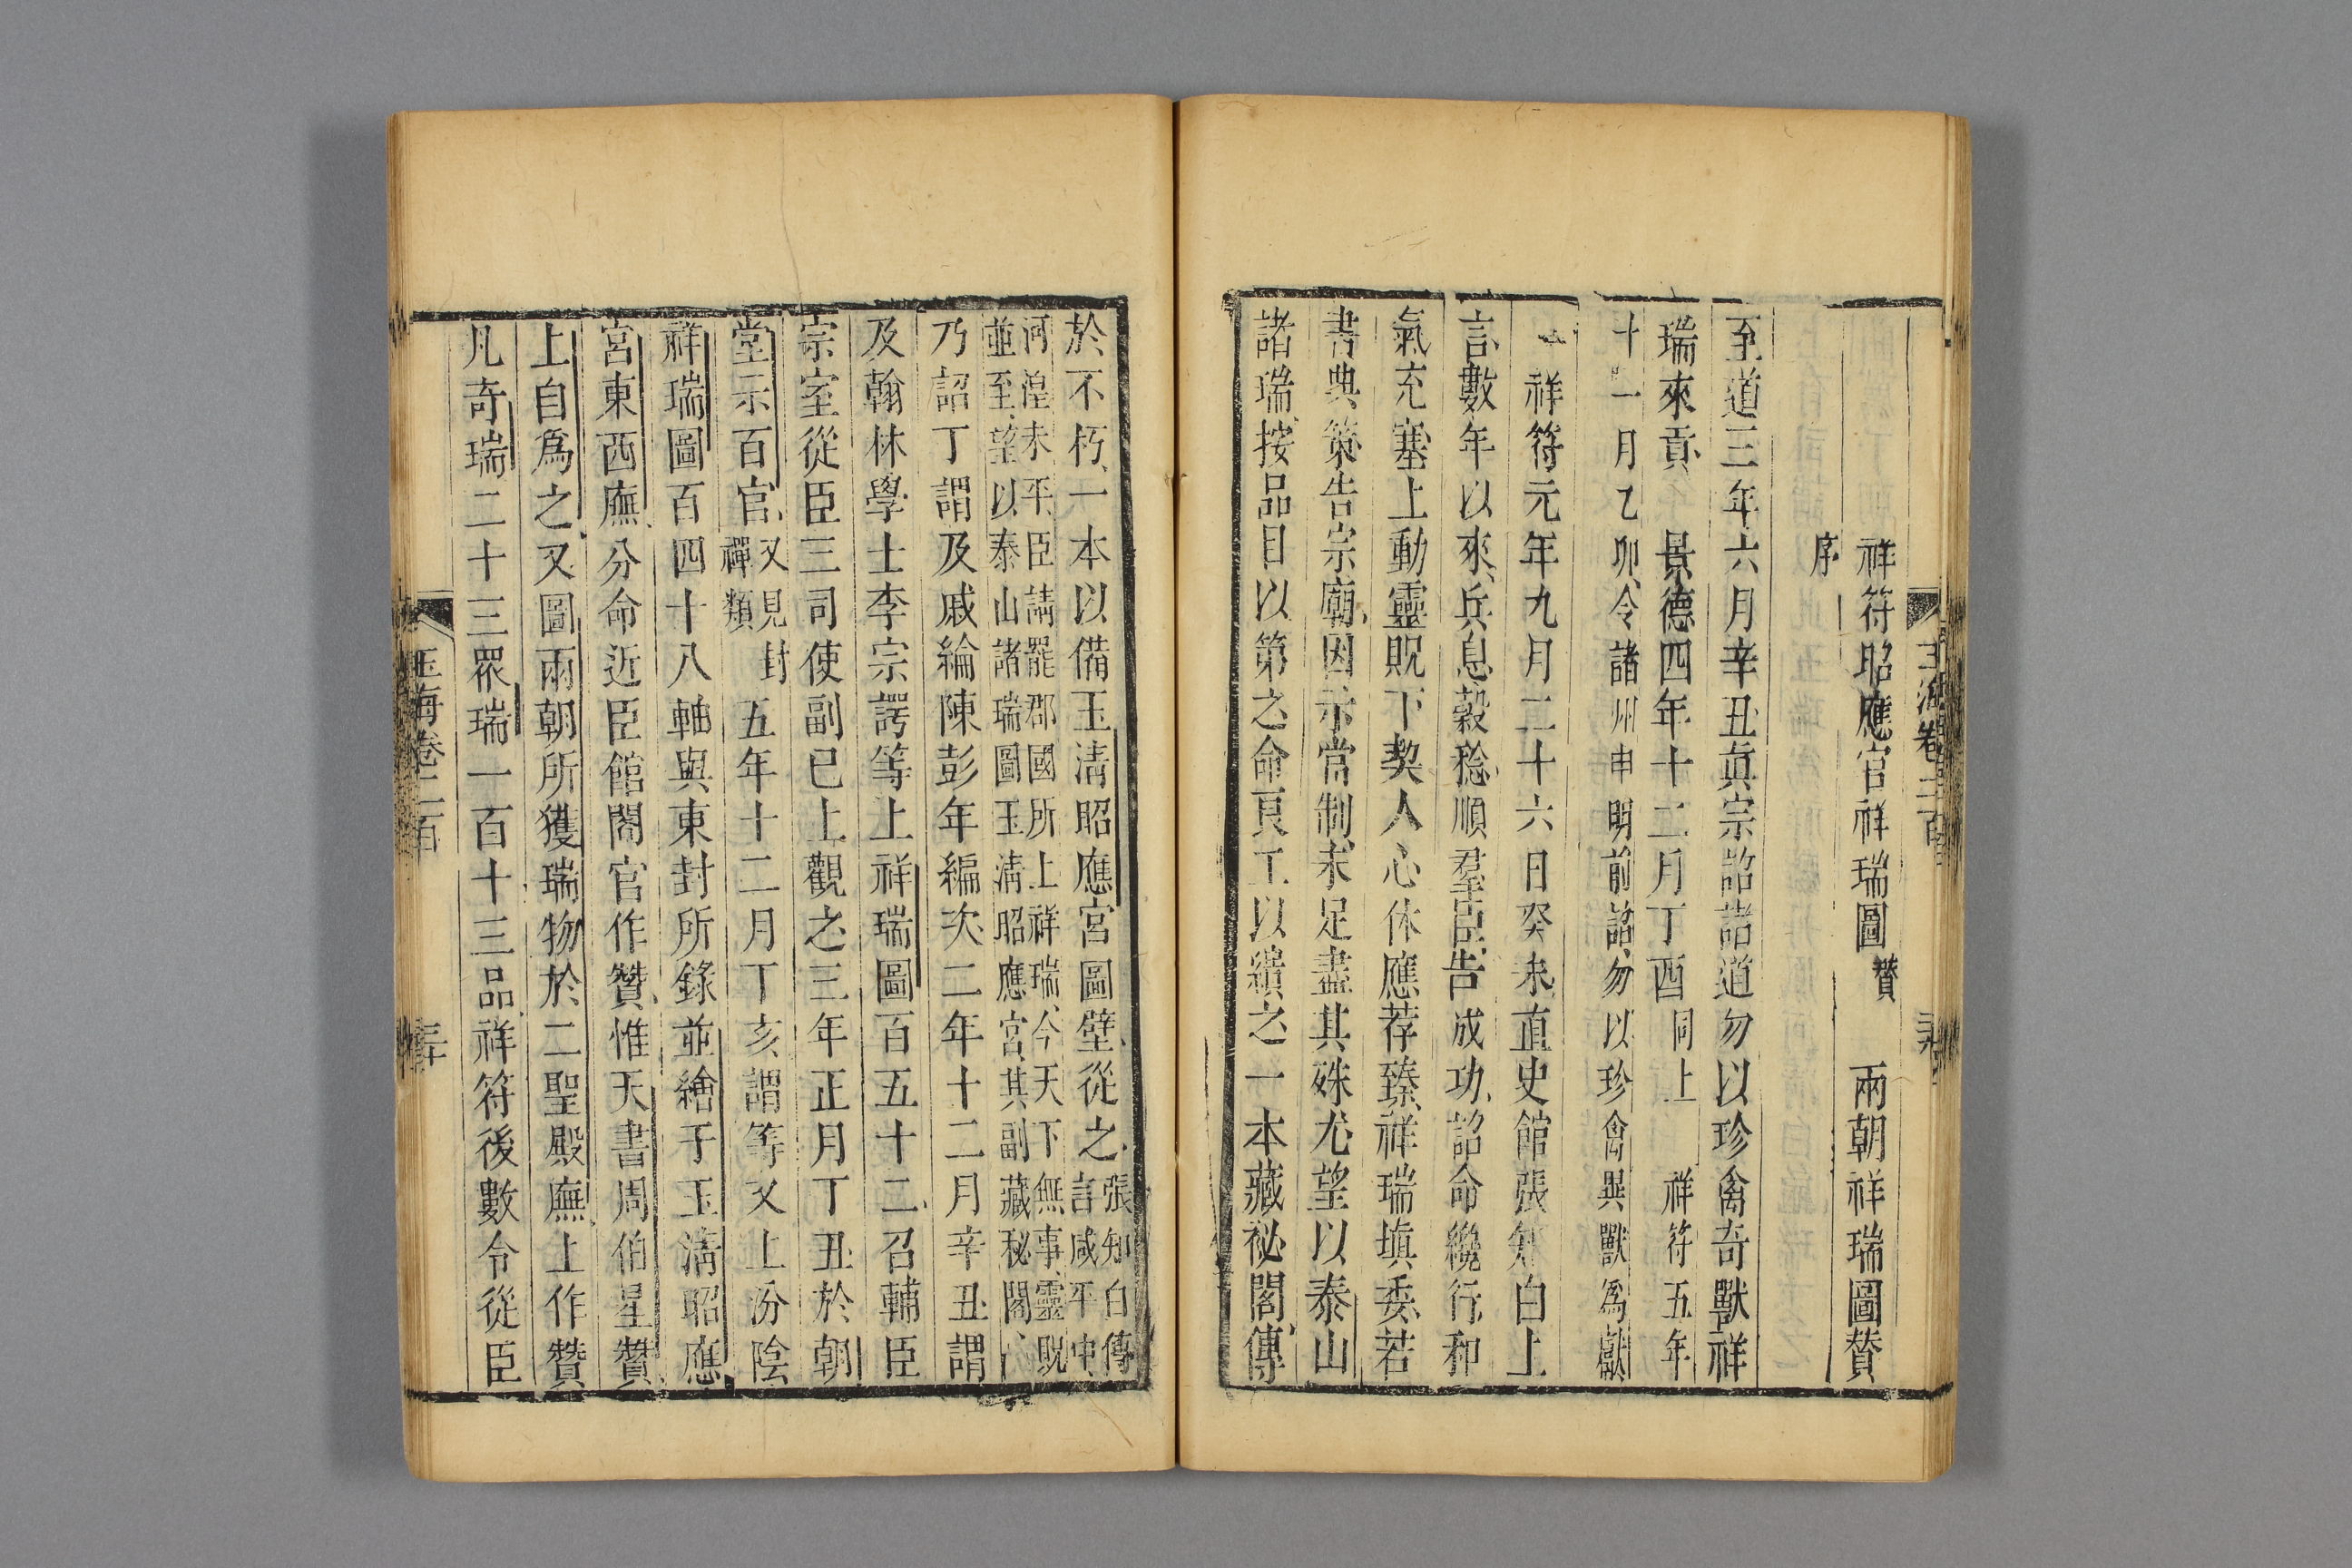 祥符昭應宮祥瑞圖贊　兩朝祥瑞圖贊
序
至道三年六月辛丑眞宗詔諸道勿以珍禽奇獸祥
瑞來貢　景德四年十二月丁酉同上　祥符五年
十一月乙卯令諸州申明前詔勿以珍禽異獸爲獻
祥符元年九月二十六日癸未直史館張知白上
言數年以來兵息穀稔順羣臣告成功詔命纔行和
氣充塞上動靈貺下契人心休應荐臻祥瑞塡委若
書典策告宗廟因示常制未足盡其殊尤望以泰山
諸瑞按品目以第之命良工以繢之一本藏祕閣傳
於不朽一本以備玉清昭應宮圖壁從之張知白傳言咸平中
河湟未平臣請罷郡國所上祥瑞今天下無事靈貺
並至望以泰山諸瑞圖玉清昭應宮其副藏秘閣
乃詔丁謂及戚綸陳彭年編次二年十二月辛丑謂
及翰林學士李宗諤等上祥瑞圖百五十二召輔臣
宗室從臣三司使副已上觀之三年正月丁丑於朝
堂示百官又見封禪類五年十二月丁亥謂等又上汾陰
祥瑞圖百四十八軸與東封所錄並繪于玉清昭應
宮東西廡分命近臣館閣官作贊惟天書周伯星贊
上自爲之又圖兩朝所獲瑞物於二聖殿廡上作贊
凡奇瑞二十三眾瑞一百十三品祥符後數令從臣
玉海卷二百
三十